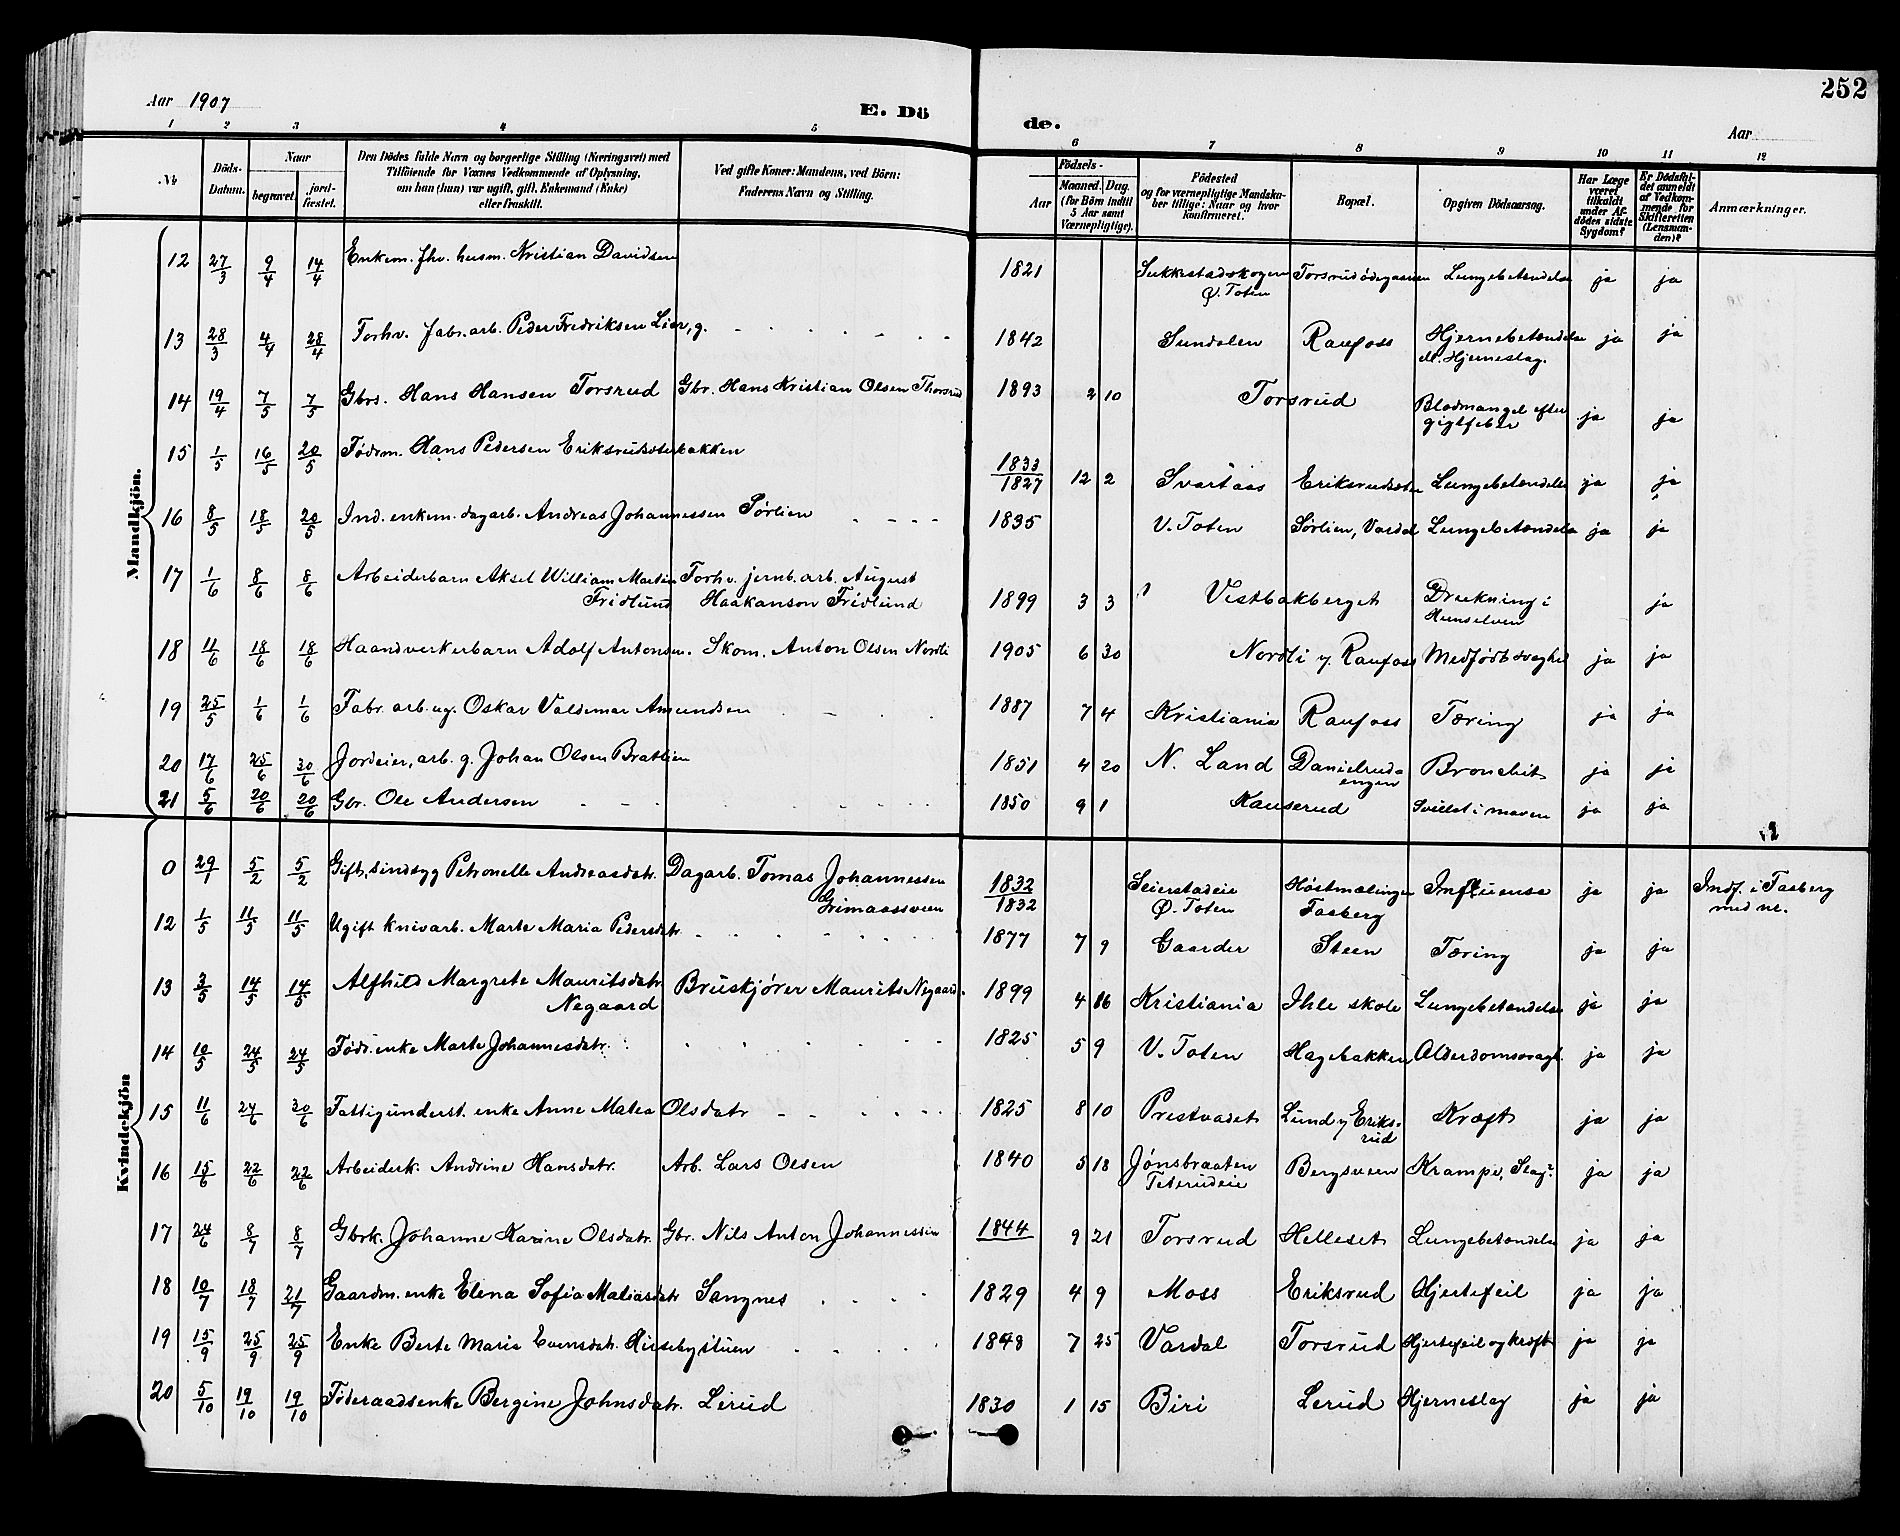 252
Aar 1907
E. Dö de.
Aar
1 2 3 4 5 6 7 8 9 10 11 12
No
Döds-Datum.
Naar
begravet.
jord-fæstet.
Den Dödes fulde Navn og borgerlige Stilling (Næringsvei) med
Tilföiende for Voxnes Vedkommende af Oplysning,
om han (hun) var ugift, gift, Enkemand (Enke)
eller fraskilt.
Ved gifte Koner: Mandens, ved Börn:
Faderens Navn og Stilling.
Födsels-
Aar
Maaned. Dag.
(for Börn indtil
5 Aar samt
Værnepligtige).
Födested
og for værnepligtige Mandska-
ber tillige: Naar og hvor
konfirmeret.
Bopæl.
Opgiven Dödsaarsag.
Har Læge
været
tilkaldt
under Af-
dödes sidste
Sygdom?
Er Dödsfal-
det anmeldt
af Vedkom-
mende for
Skifteretten
(Lensman-
den)?
Anmærkninger.
Mandkjön.
12 27/3 9/4 14/4 Enkem. fhv. husm. Kristian Davidsen 1821 Sukkestadskogen Ø. Toten Torsrudødegaarden Lungebetændelse ja ja
13 28/3 4/4 28/4 Forhv. fabr. arb. Peder Fredriksen Lier, g. 1842 Sundalen Raufoss Hjernebetændelse el. Hjerneslag. ja ja
14 19/4 7/5 7/5 Gbrs. Hans Hansen Torsrud Gbr. Hans Kristian Olsen Thorsrud 1893 2 10 Torsrud Blodmangel efter gigtfeber ja ja
15 1/5 16/5 20/5 Födrm. Hans Pedersen Eriksrudsæterbakken 1833/1827 12 2 Svartaas Eriksrudsæter Lungebetændelse ja ja
16 8/5 18/5 20/5 Ind. enkem. dagarb. Andreas Johannessen Sørlien 1835 V. Toten Sørlien, Vardal Lungebetændelse ja ja
17 1/6 8/6 8/6 Arbeiderbarn Aksel William Martin Fridlund Forhv. jernb. arb. August Haakanson Fridlund 1899 3 3 Vestbakberget Drukning i Hunselven ja
18 11/6 18/6 18/6 Haandverkerbarn Adolf Antonsen. Skom. Anton Olsen Nordli 1905 6 30 Nordli y Raufoss Medfødt svaghed ja ja
19 25/5 1/6 1/6 Fabr. arb. ug. Oskar Valdemar Amundsen 1887 7 4 Kristiania Raufoss Tæring ja ja
20 17/6 25/6 30/6 Jordeier, arb. g. Johan Olsen Bratlien 1851 4 20 N. Land Danielrudengen Bronchit ja ja
21 5/6 20/6 20/6 Gbr. Ole Andersen 1850 9 1 Kauserud Svulst i maven ja ja
Kvindekjön
0 29/1 5/2 5/2 Gift, sindsyg Petronelle Andreasdatr. Dagarb. Tomas Johannessen Grimaassveen 1832/1832 Seierstadeie Ø. Toten Høstmælingen Faaberg Influensa ja ja Indf. i Faaberg med nr.
12 1/5 11/5 11/5 Ugift knivarb. Marte Maria Pedersdatr. 1877 7 9 Gaarder Steen Tæring ja ja
13 3/5 14/5 14/5 Alfhild Margrete Mauritsdatr. Negaard Bruskjører Maurits Negaard. 1899 4 16 Kristiania Ihle skole Lungebetændelse ja ja
14 10/5 24/5 24/5 Födr. enke Marte Johannesdatr. 1825 5 9 V. Toten Hagebakken Alderdomssvagh. ja ja
15 11/6 24/6 30/6 Fattigunderst. enke Anne Matea Olsdatr 1825 8 10 Prestvadet Lund y Eriksrud Kræft ja ja
16 15/6 22/6 22/6 Arbeiderk. Andrine Hansdatr. Arb. Lars Olsen 1840 5 18 Jønsbraaten Teterudeie Bergsveen Krampe, Slag? ja ja
17 24/6 8/7 8/7 Gbrk. Johanne Karine Olsdatr. Gbr. Nils Anton Johannessen 1844 9 21 Torsrud Helleset Lungebetændelse ja ja
18 10/7 18/7 21/7 Gaardm. enke Elena Sofia Matiasdatr Sangnes 1829 4 9 Moss Eriksrud Hjertefeil ja ja
19 15/9 25/9 25/9 Enke Berte Maria Evensdatr. Husebystuen 1848 7 25 Vardal Torsrud Hjertefeil og kræft ja ja
20 5/10 19/10 19/10 Føderaadsenke Bergine Johnsdatr. Lerud 1830 1 15 Biri Lerud Hjerneslag ja ja